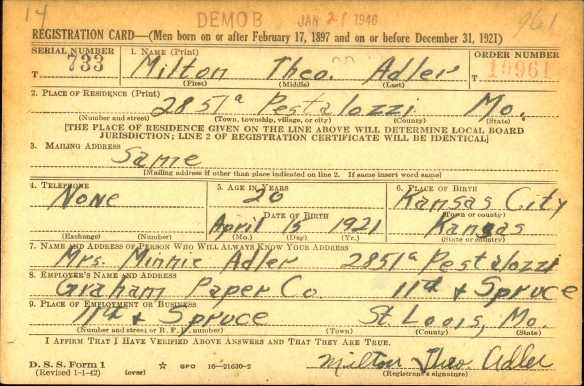 14 DEMOB JAN 21 1946 961
REGISTRATION CARD—(Men born on or after February 17, 1897 and on or before December 31, 1921)
SERIAL NUMBER 1. NAME (Print) ORDER NUMBER
T 733 Milton Theo. Adler T 10961
(First) (Middle) (Last)
2. PLACE OF RESIDENCE (Print)
2851a Pestalozzi Mo.
(Number and street) (Town, township, village, or city) (County) (State)
[THE PLACE OF RESIDENCE GIVEN ON THE LINE ABOVE WILL DETERMINE LOCAL BOARD
JURISDICTION; LINE 2 OF REGISTRATION CERTIFICATE WILL BE IDENTICAL]
3. MAILING ADDRESS
Same
[Mailing address if other than place indicated on line 2. If same insert word same]
4. TELEPHONE 5. AGE IN YEARS 6. PLACE OF BIRTH
None 20 Kansas City
DATE OF BIRTH (Town or county)
April 15 1921 Kansas
(Exchange) (Number) (Mo.) (Day) (Yr.) (State or country)
7. NAME AND ADDRESS OF PERSON WHO WILL ALWAYS KNOW YOUR ADDRESS
Mrs. Minnie Adler 2851a Pestalozzi
8. EMPLOYER'S NAME AND ADDRESS
Graham Paper Co. 11th & Spruce
9. PLACE OF EMPLOYMENT OR BUSINESS
11th & Spruce St. Louis, Mo.
(Number and street or R. F. D. number) (Town) (County) (State)
I AFFIRM THAT I HAVE VERIFIED ABOVE ANSWERS AND THAT THEY ARE TRUE.
D. S. S. Form 1
(Revised 1-1-42) (over) GPO 16—21630-2 Milton Theo. Adler
(Registrant's signature)